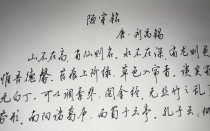 陋室铭
唐·刘禹锡
山不在高，有仙则名。水不在深，有龙则灵
惟吾德馨。苔痕上阶绿，草色入帘青。谈笑
无白丁。可以调素琴，阅金经。无丝竹之乱
劳形。南阳诸葛庐，西蜀子云亭。孔子云：何